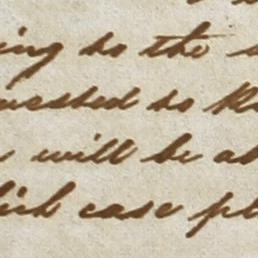 ing to the
uested to
will be
case